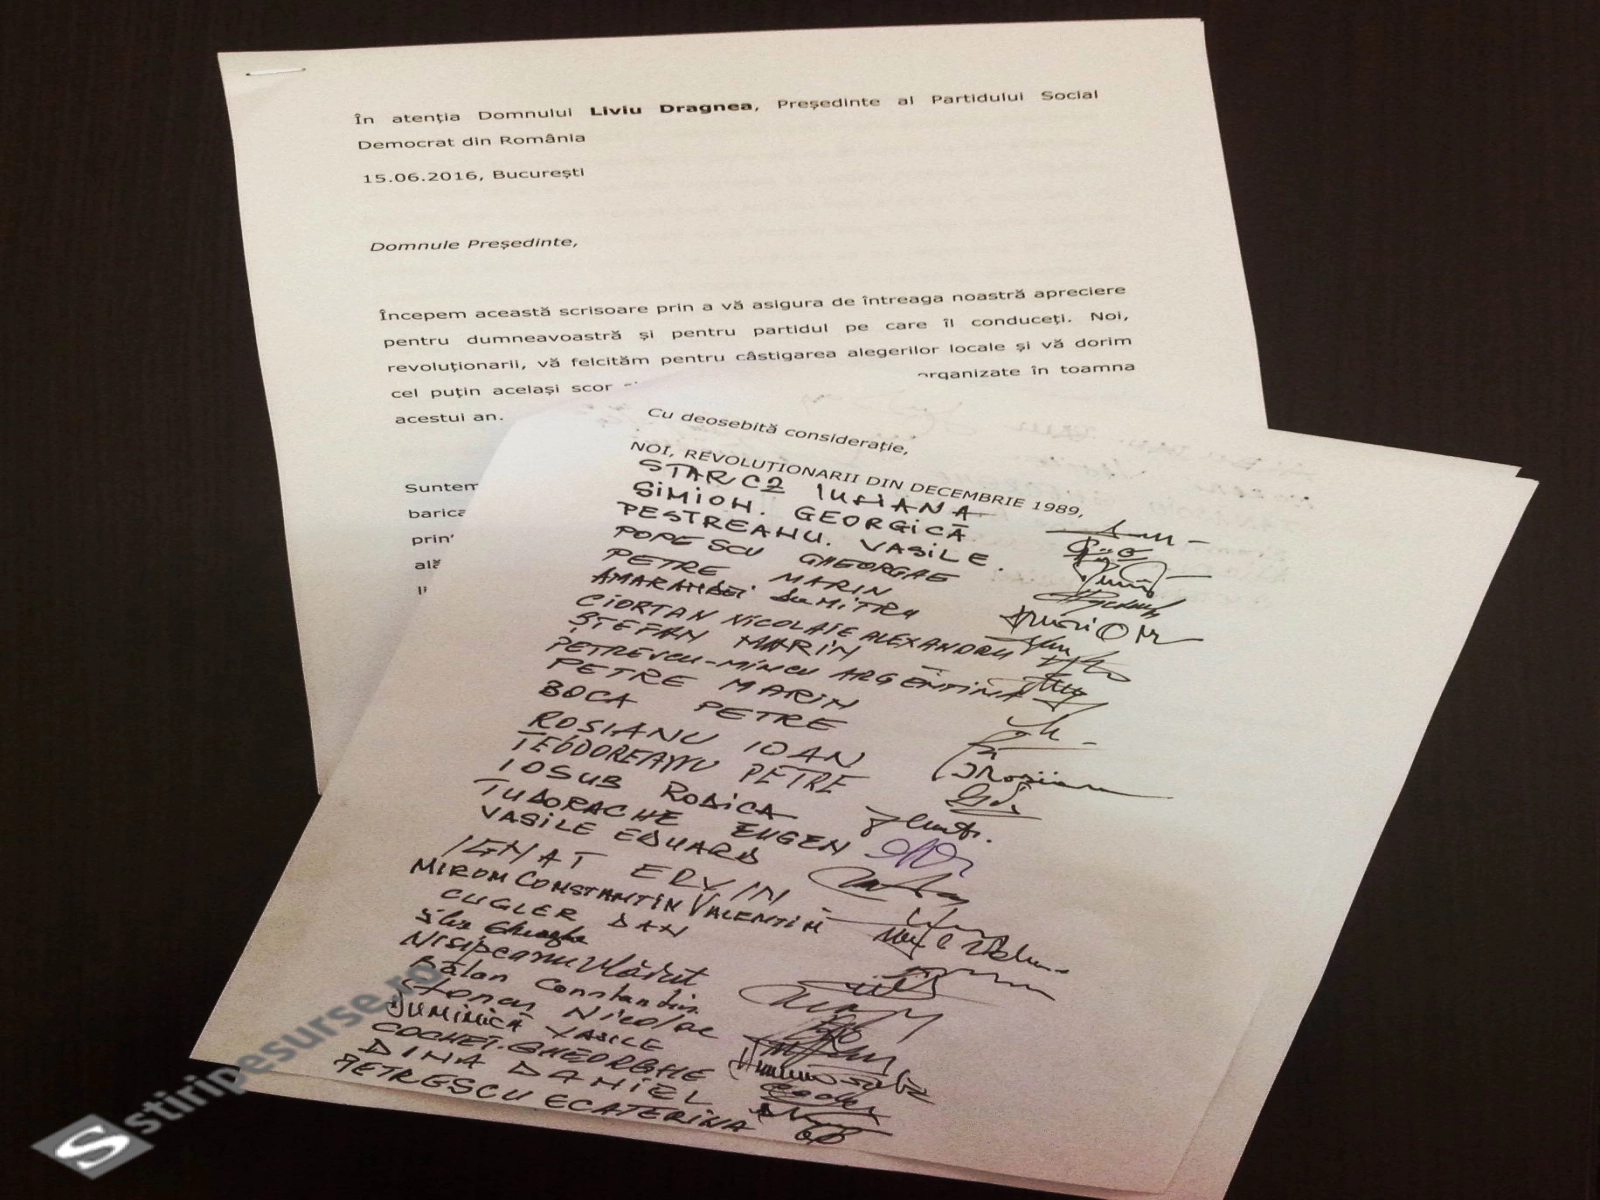 În atenția Domnului Liviu Dragnea, Președinte al Partidului Social
Democrat din România
15.06.2016, București
Domnule Președinte,
Începem această scrisoare prin a vă asigura de întreaga noastră apreciere
pentru dumneavoastră și pentru partidul pe care îl conduceți. Noi,
revoluționarii, vă felcităm pentru câstigarea alegerilor locale și vă dorim
cel puțin același scor organizate în toamna
acestui an.
Suntem
Cu deosebită considerație,
NOI, REVOLUȚIONARII DIN DECEMBRIE 1989,
STARCZ IULIANA
SIMION. GEORGICĂ
PESTREANU. VASILE.
POPESCU GHEORGHE
PETRE MARIN
AMARANDEI DUMITRU
CIORTAN NICOLAIE ALEXANDRU
ȘTEFAN MARIN
PETRESCU-MINCU ARGENTINA
PETRE MARIN
BOCA PETRE
ROȘIANU IOAN
TEODOREANU PETRE
IOSUB RODICA
TUDORACHE EUGEN
VASILE EDUARD
IGNAT ERVIN
MIRON CONSTANTIN VALENTIN
CUGLER DAN
Gheorghe
Nisipeanu Vlăduț
Bălan Constandin
Nicolae
JUMINICĂ VASILE
COCHEȚ. GHEORGHE
DINA DANIEL
PETRESCU ECATERINA
stiripesurse.ro